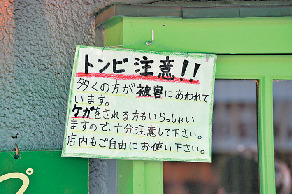 トンビ注意!!
多くの方が被害にあわれて
います。
ケガをされる方もいらっしゃい
ますので、十分注意して下さい。
店内もご自由にお使い下さい。